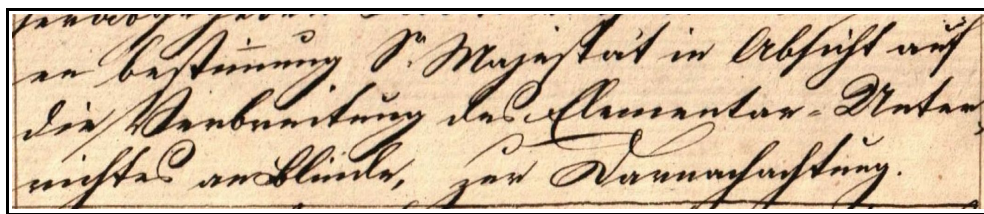 en bestim̅ung Sr. Majestät in Absicht auf
die Verbreitung des Elementar-Unter-
richtes an Blinde, zur Darnachachtung.